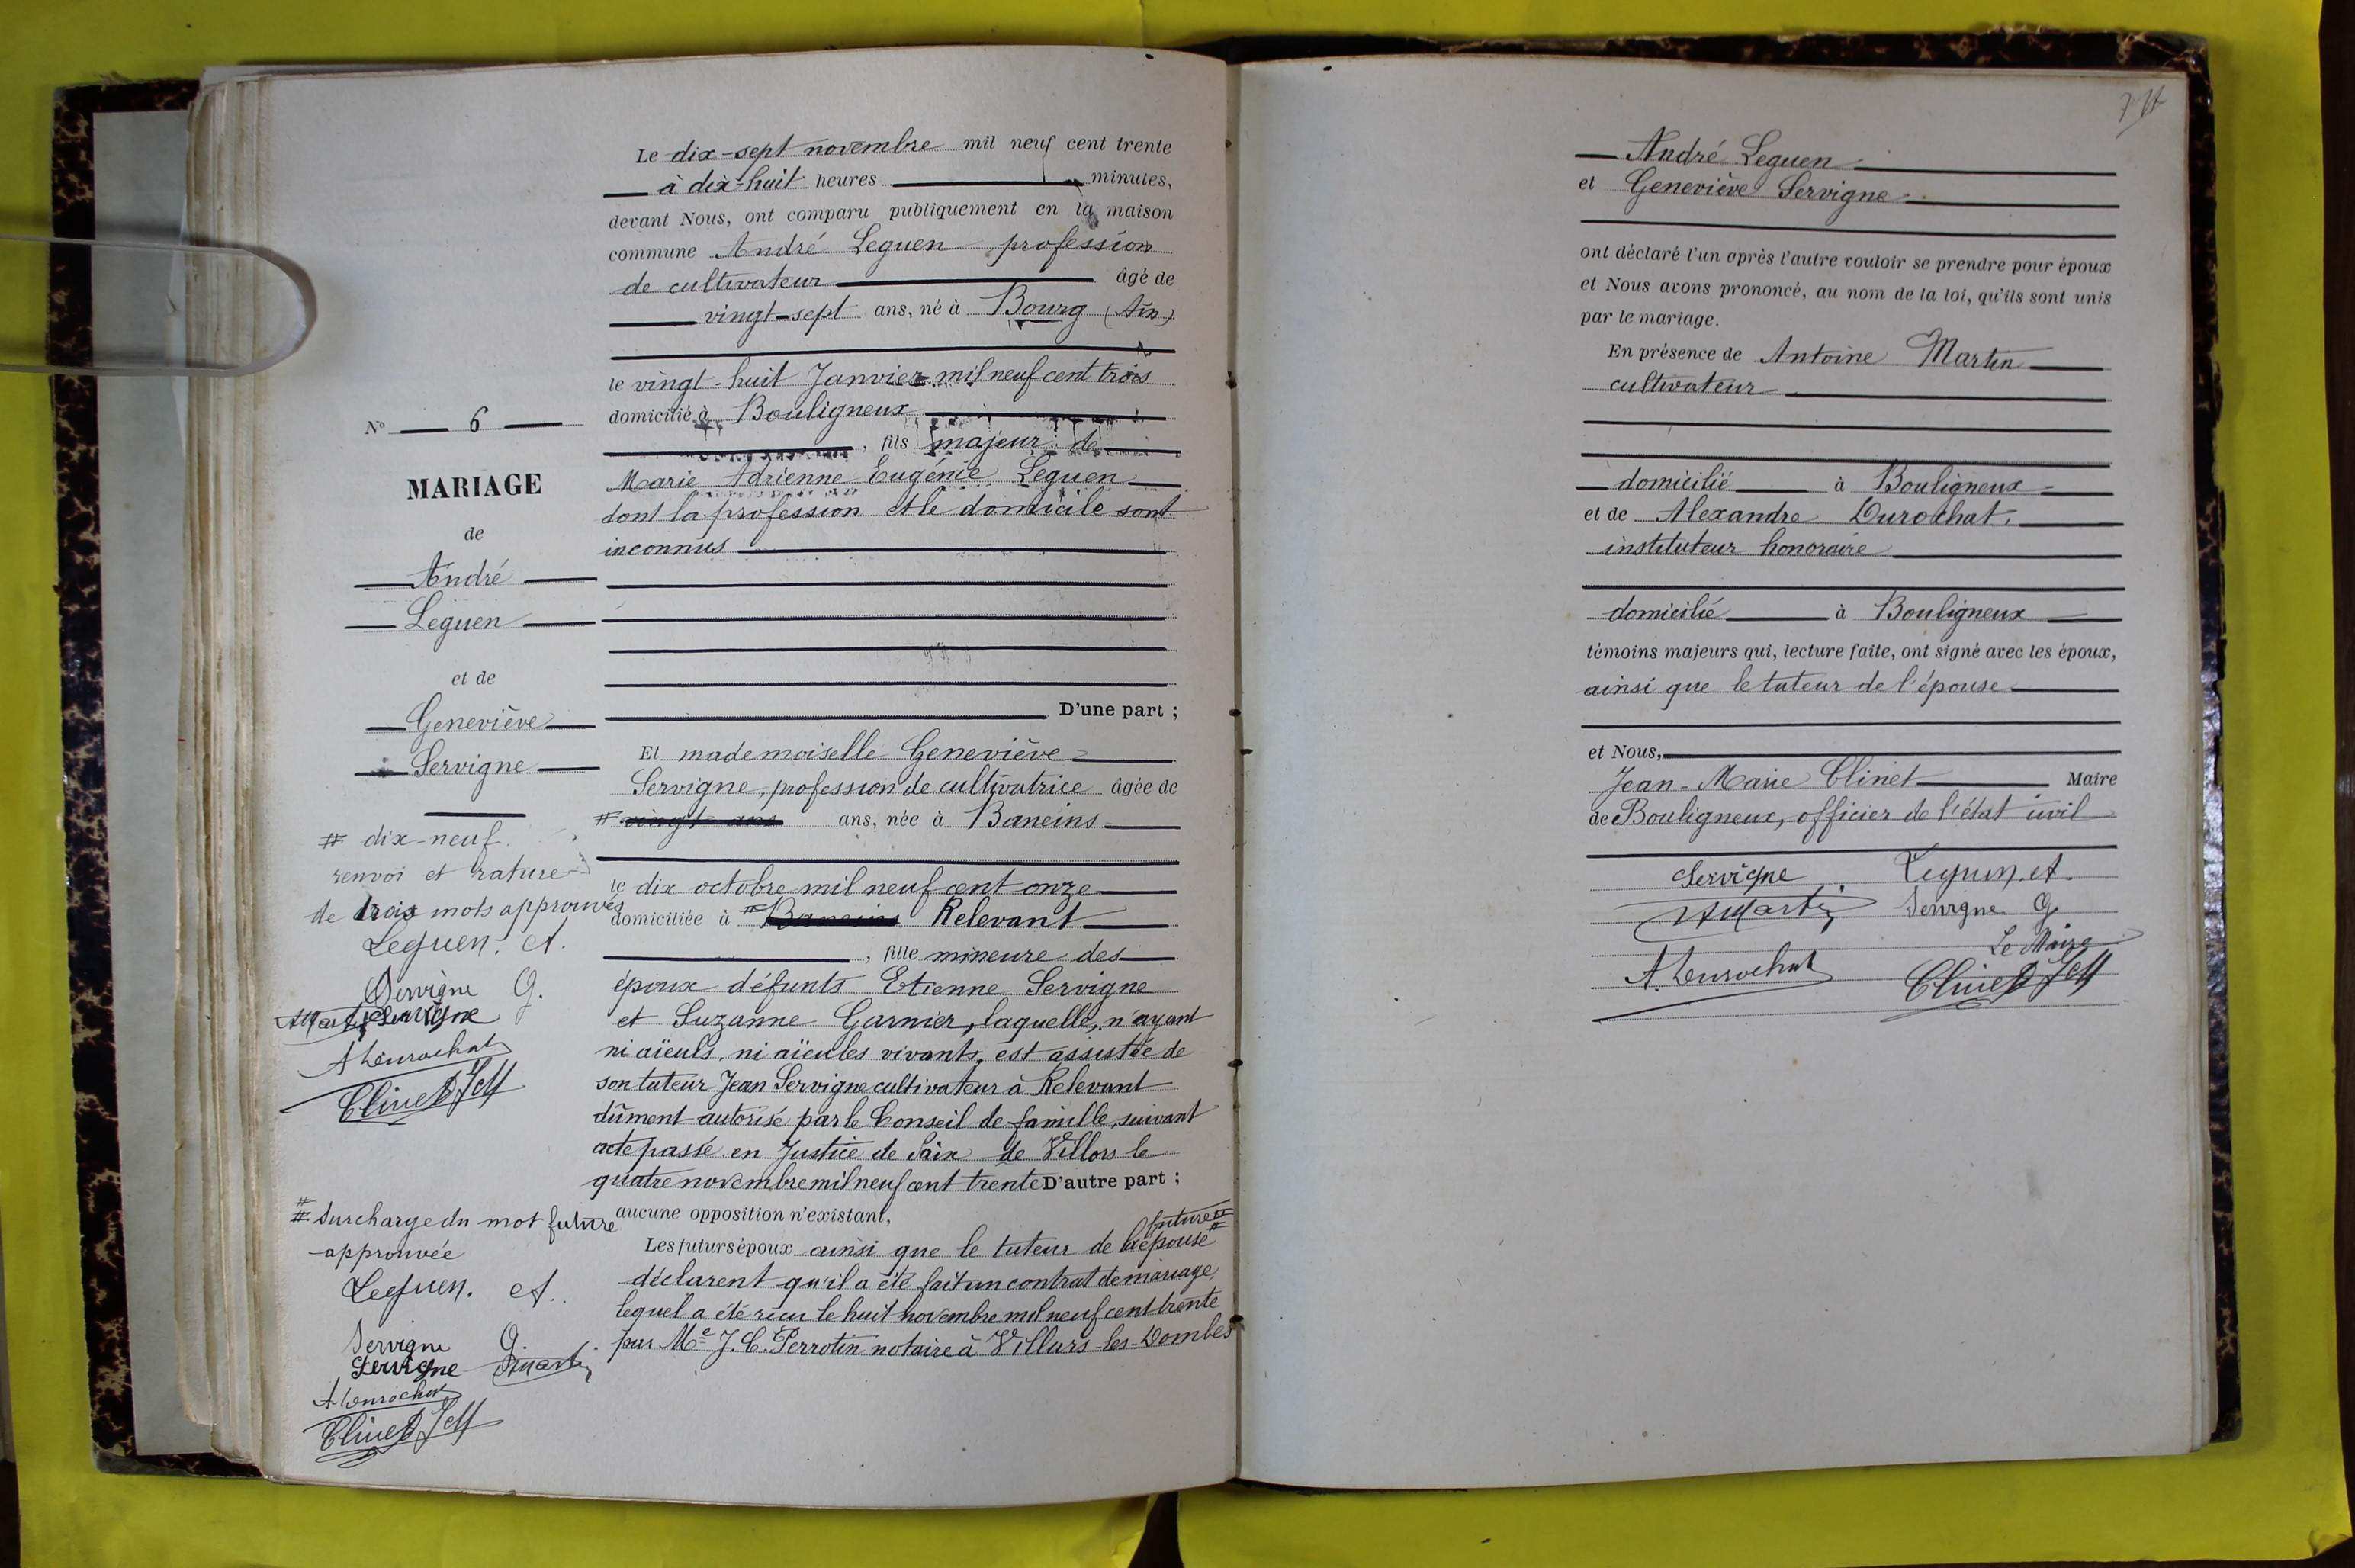 N° 6
MARIAGE
de
André
Leguen
et de
Geneviève
Servigne
# dix-neuf.
renvoi et rature
de trois mots approuvés
Leguen. A.
Servigne G.
AMartin Servigne
A Durochat
Clinet JM
# surcharge du mot future
approuvée
Leguen. A.
Servigne G.
Servigne AMartin
A Durochat
Clinet JM
Le dix-sept novembre mil neuf cent trente
à dix-huit heures minutes,
devant Nous, ont comparu publiquement en la maison
commune André Leguen profession
de cultivateur âgé de
vingt-sept ans, né à Bourg (Ain).
le vingt-huit Janvier mil neuf cent trois
domicilié à Bouligneux
, fils majeur de
Marie Adrienne Eugénie Leguen
dont la profession et le domicile sont
inconnus
D'une part ;
Et mademoiselle Geneviève
Servigne, profession de cultivatrice âgée de
# vingt ans ans, née à Baneins
le dix octobre mil neuf cent onze
domiciliée à # Baneins Relevant
, fille mineure des
époux défunts Etienne Servigne
et Suzanne Garnier, laquelle, n'ayant
ni aïeuls, ni aïeules vivants, est assistée de
son tuteur Jean Servigne cultivateur à Relevant
dûment autorisé par le Conseil de famille, suivant
acte passé en Justice de Paix de Villars le
quatre novembre mil neuf cent trente D'autre part ;
aucune opposition n'existant,
future #
Les futurs époux ainsi que le tuteur de l'épouse #
déclarent qu'il a été fait un contrat de mariage,
lequel a été reçu le huit novembre mil neuf cent trente
par Me J. C. Perrotin notaire à Villars-les-Dombes
André Leguen
et Geneviève Servigne
ont déclaré l'un après l'autre vouloir se prendre pour époux
et Nous avons prononcé, au nom de la loi, qu'ils sont unis
par le mariage.
En présence de Antoine Martin
cultivateur
domicilié à Bouligneux
et de Alexandre Durochat,
instituteur honoraire
domicilié à Bouligneux
témoins majeurs qui, lecture faite, ont signé avec les époux,
ainsi que le tuteur de l'épouse
et Nous,
Jean-Marie Clinet Maire
de Bouligneux, officier de l'état civil
Servigne Leguen. A.
AMartin Servigne G
Le Maire
A. Durochat Clinet JM